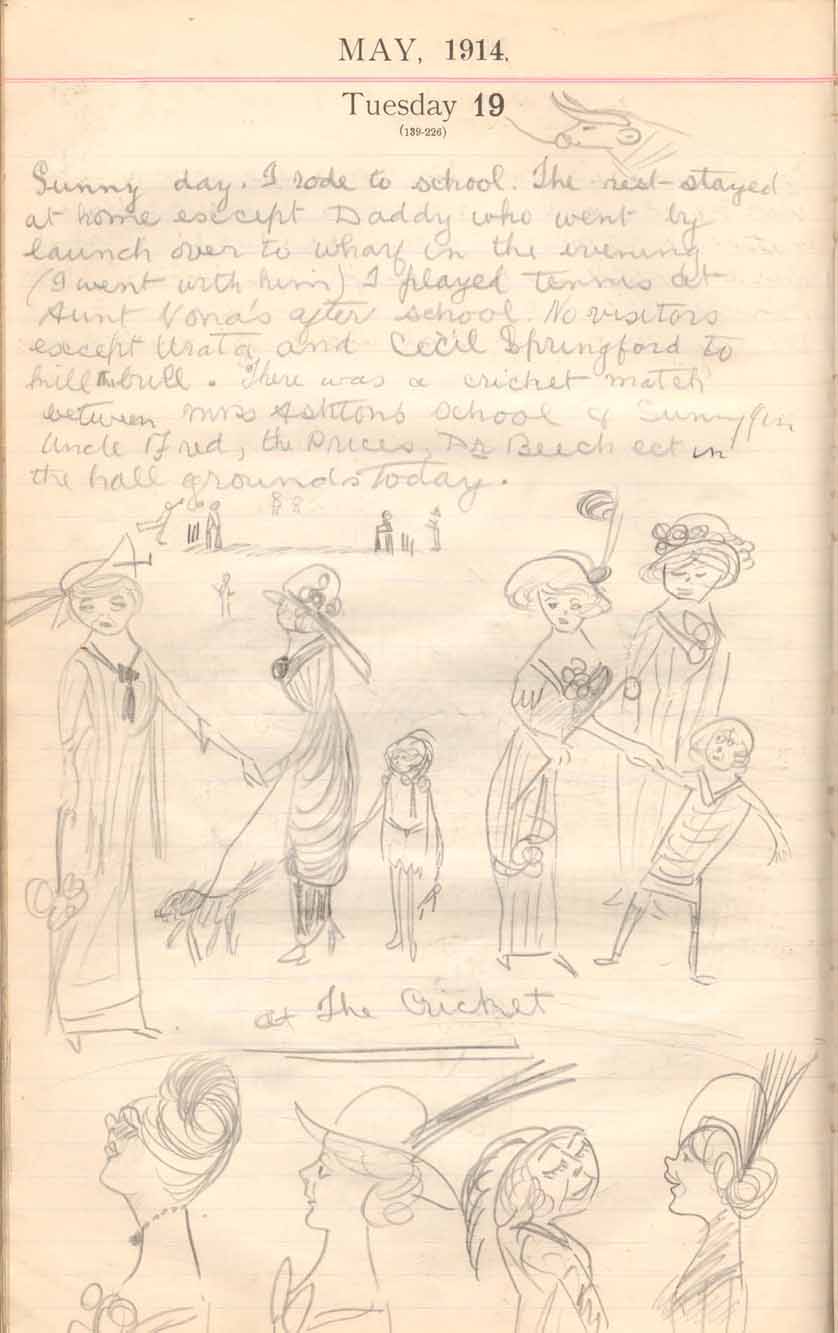 MAY, 1914.
Tuesday 19
(139-226)
Sunny day. I rode to school. The rest stayed
at home esccept Daddy who went by
launch over to wharf in the evening
(I went with him) I played tennis at
Aunt Nona's after school. No visitors
esccept Urata and Cecil Springford to
kill bull. There was a cricket match
between Mrs Ashton's school &
Uncle Fred, the Prices, Dr Beech ect in
the hall grounds Today.
at The Cricket